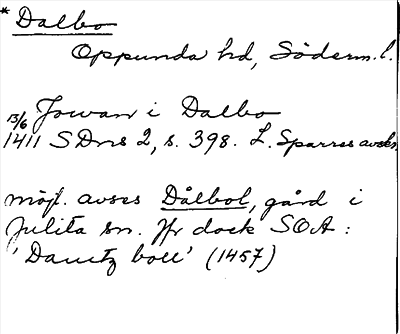 * Dalbo
Oppunda hd, Söderm.l.
13/6 Jowan i Dalbo
1411 SDns 2, s. 398. L. Sparres avskr.
möjl. avses Dålbol, gård i
Julita sn. Jfr dock SOA:
'Dauetz boll' (1457)